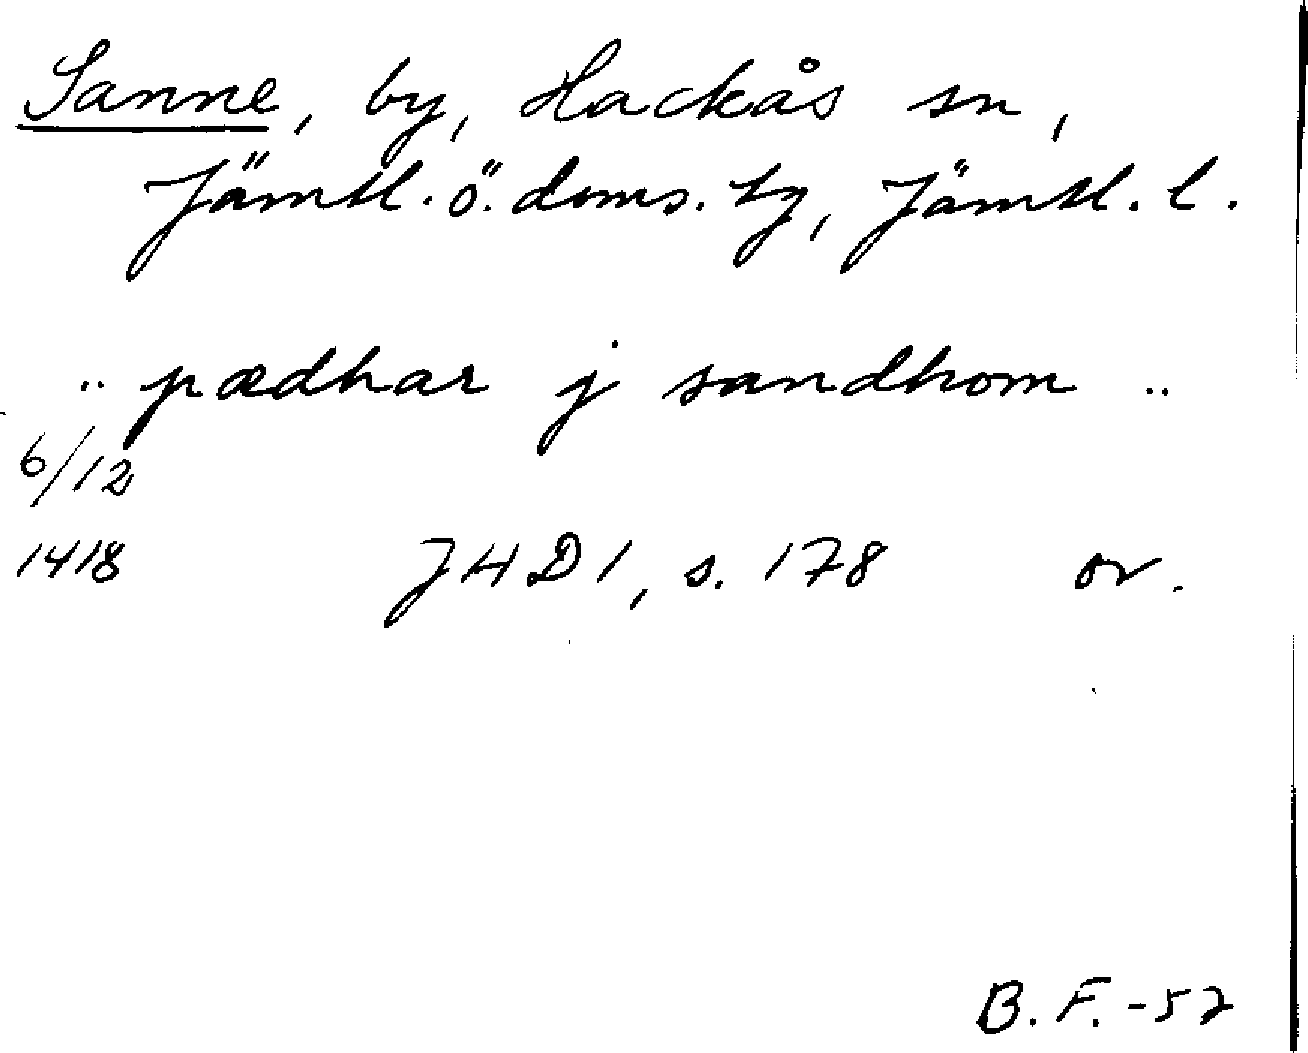 Sanne, by, Hackås sn,
Jämtl. ö. doms. tg, Jämtl. l.
.. pædhar j sandhom ..
6/12
1418 JHD1, s. 178 or.
B. F. -52